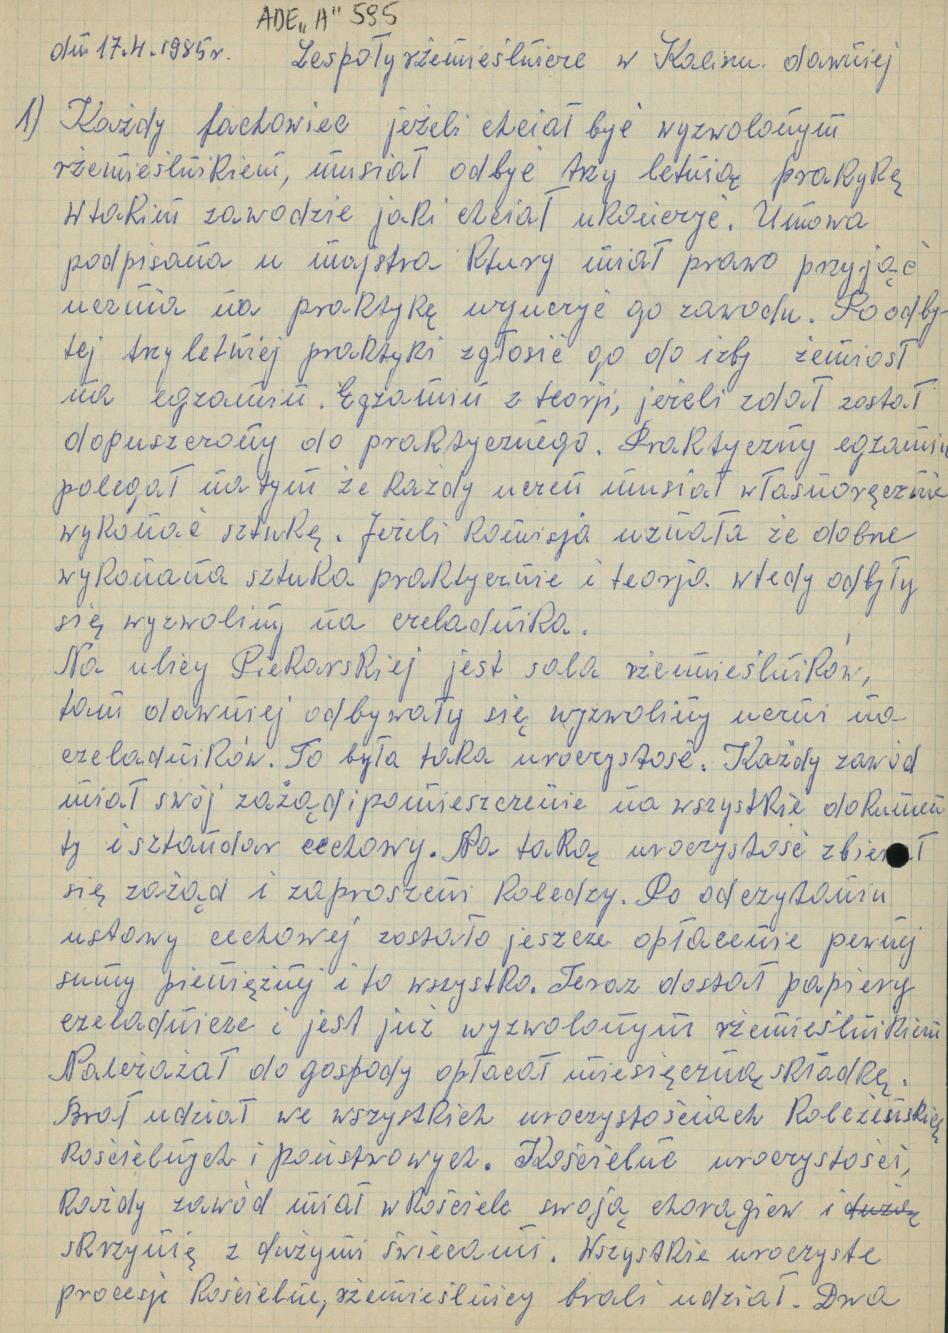 ADE„A" 595
dn 17.4.1985r. Zespoły rzemieślnicze w Kaliszu. dawniej
1) Każdy fachowiec jeżeli chciał być wyzwolonym
rzemieślnikiem, musiał odbyć trzy letnią prakykę
w takim zawodzie jaki chciał ukończyć. Umowa
podpisana u majstra ktury miał prawo przyjąć
ucznia na praktykę wyuczyć go zawodu. Po odby-
tej trzyletniej praktyki zgłosić go do izby żemiosł
na egzamin. Egzamin z teorji, jeżeli zdał został
dopuszczony do praktycznego. Praktyczny egzamin
polegał na tym że każdy uczeń musiał własnoręcznie
wykonać sztukę. Jeżeli komisja uznała że dobrze
wykonana sztuka praktycznie i teorja. wtedy odbyły
się wyzwoliny na czeladnika.
Na ulicy Piekarskiej jest sala rzemieślników,
tam dawniej odbywały się wyzwoliny uczni na
czeladników. To była taka uroczystość. Każdy zawód
miał swój zażąd i pomieszczenie na wszystkie dokumen
ty i sztandar cechowy. Na taką uroczystość zbierał
się zażąd i zaproszeni koledzy. Po odczytaniu
ustawy cechowej zostało jeszcze opłacenie pewnej
sumy pieniężnej i to wszystko. Teraz dostał papiery
czeladnicze i jest już wyzwolonym rzemieślnikiem
Należażał do gospody opłacał miesięczną składkę.
Brał udział we wszystkich uroczystościach koleżeńskich
kościelnych i państwowych. Kościelne uroczystości,
każdy zawód miał w kościele swoją chorągiew i dużą
skrzynię z dużymi świecami. Wszystkie uroczyste
procesje kościelne, rzemieślnicy brali udział. Dwa